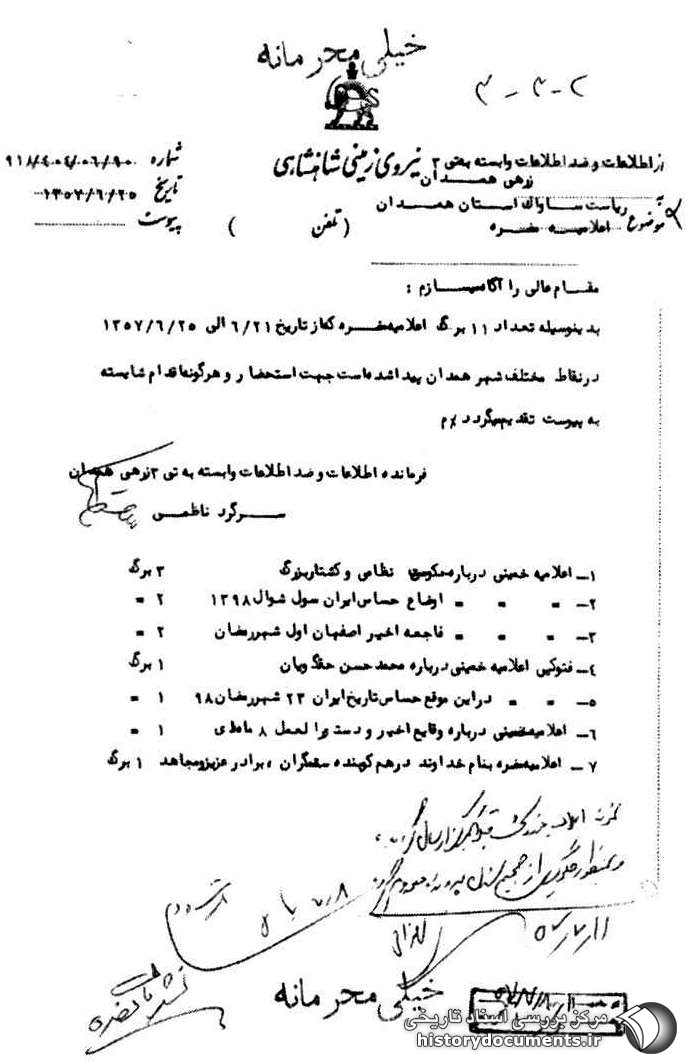 خیلی محرمانه
۳-۳-۲
از اطلاعات و ضد اطلاعات وابسته به تی ۳ زرهی همدان
نیروی زمینی شاهنشاهی
شماره ۹۱۸/۴۰۴/۰۶/۹۰
به ریاست ساواک استان همدان
تاریخ ۱۳۵۷/۶/۲۵
موضوع اعلامیه مضره
(تلفن )
پیوست
مقام عالی را آگاه میسازم :
بدینوسیله تعداد ۱۱ برگ اعلامیه مضره که از تاریخ ۶/۲۱ الی ۱۳۵۷/۶/۲۵
در نقاط مختلف شهر همدان پیدا شده است جهت استحضار و هرگونه اقدام شایسته
به پیوست تقدیم میگردد
فرمانده اطلاعات و ضد اطلاعات وابسته به تی ۳ زرهی همدان
سرگرد ناظمی
۱- اعلامیه خمینی درباره حکومت نظامی و کشتار بزرگ ۳ برگ
۲- " " " اوضاع حساس ایران سول شوال ۱۳۹۸ ۲ "
۳- " " " فاجعه اخیر اصفهان اول شهر رمضان ۲ "
۴- فتوکپی اعلامیه خمینی درباره محمد حسن حقگویان ۱ برگ
۵- " " در این موقع حساس تاریخ ایران ۲۳ شهر رمضان ۹۸ ۱ "
۶- اعلامیه خمینی درباره وقایع اخیر و دستورالعمل ۸ ماده‌ی ۱ "
۷- اعلامیه مضره بنام خداوند درهم کوبنده ستمگران ، برادر عزیز و مجاهد ۱ برگ
خیلی محرمانه
مرکز بررسی اسناد تاریخی
historydocuments.ir